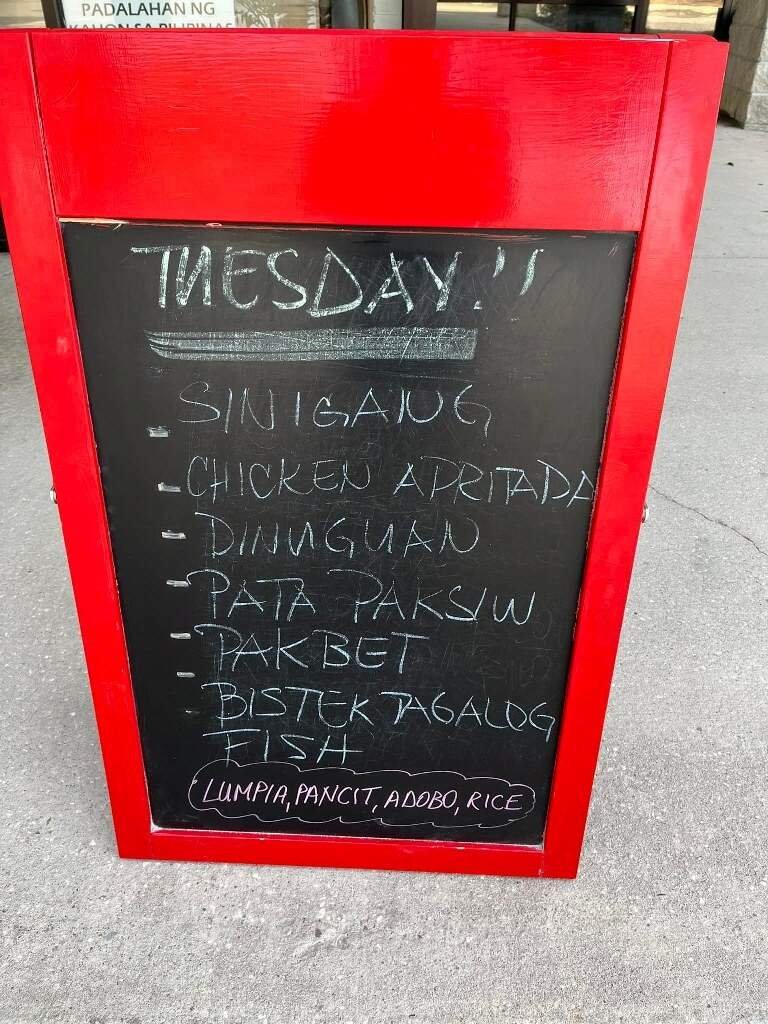 PADALAHAN NG
KAHON SA PILIPINAS
TUESDAY!!
- SINIGANG
- CHICKEN APRITADA
- DINUGUAN
- PATA PAKSIW
- PAKBET
- BISTEK TAGALOG
- FISH
LUMPIA, PANCIT, ADOBO, RICE